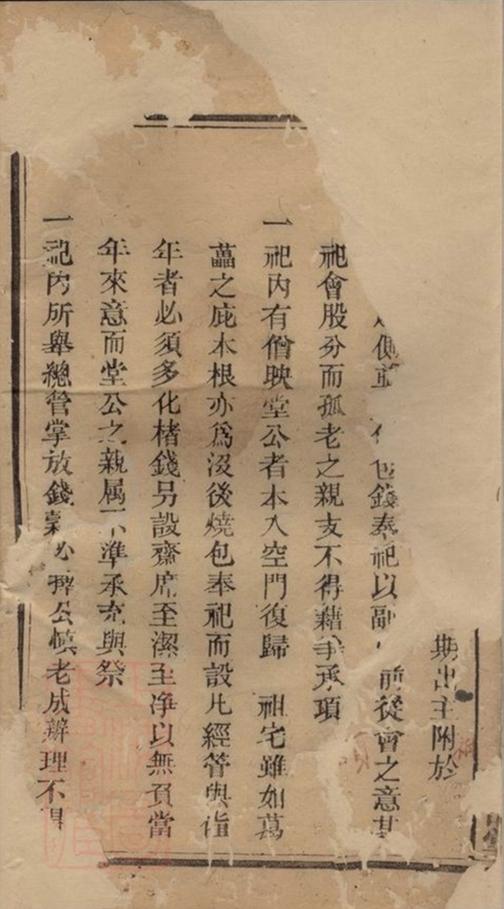 期出主附於
包錢奉祀以副 前從會之意其
祀會股分而孤老之親支不得藉爭承項
一祀內有僧映堂公者本入空門復歸 祖宅雖如萬
藟之庇本根亦爲沒後燒包奉祀而設凡經管與值
年者必須多化楮錢另設齋席至潔至净以無負當
年來意而堂公之親属不準承充與祭
一祀內所舉總管掌放錢穀必擇公慎老成辦理不得